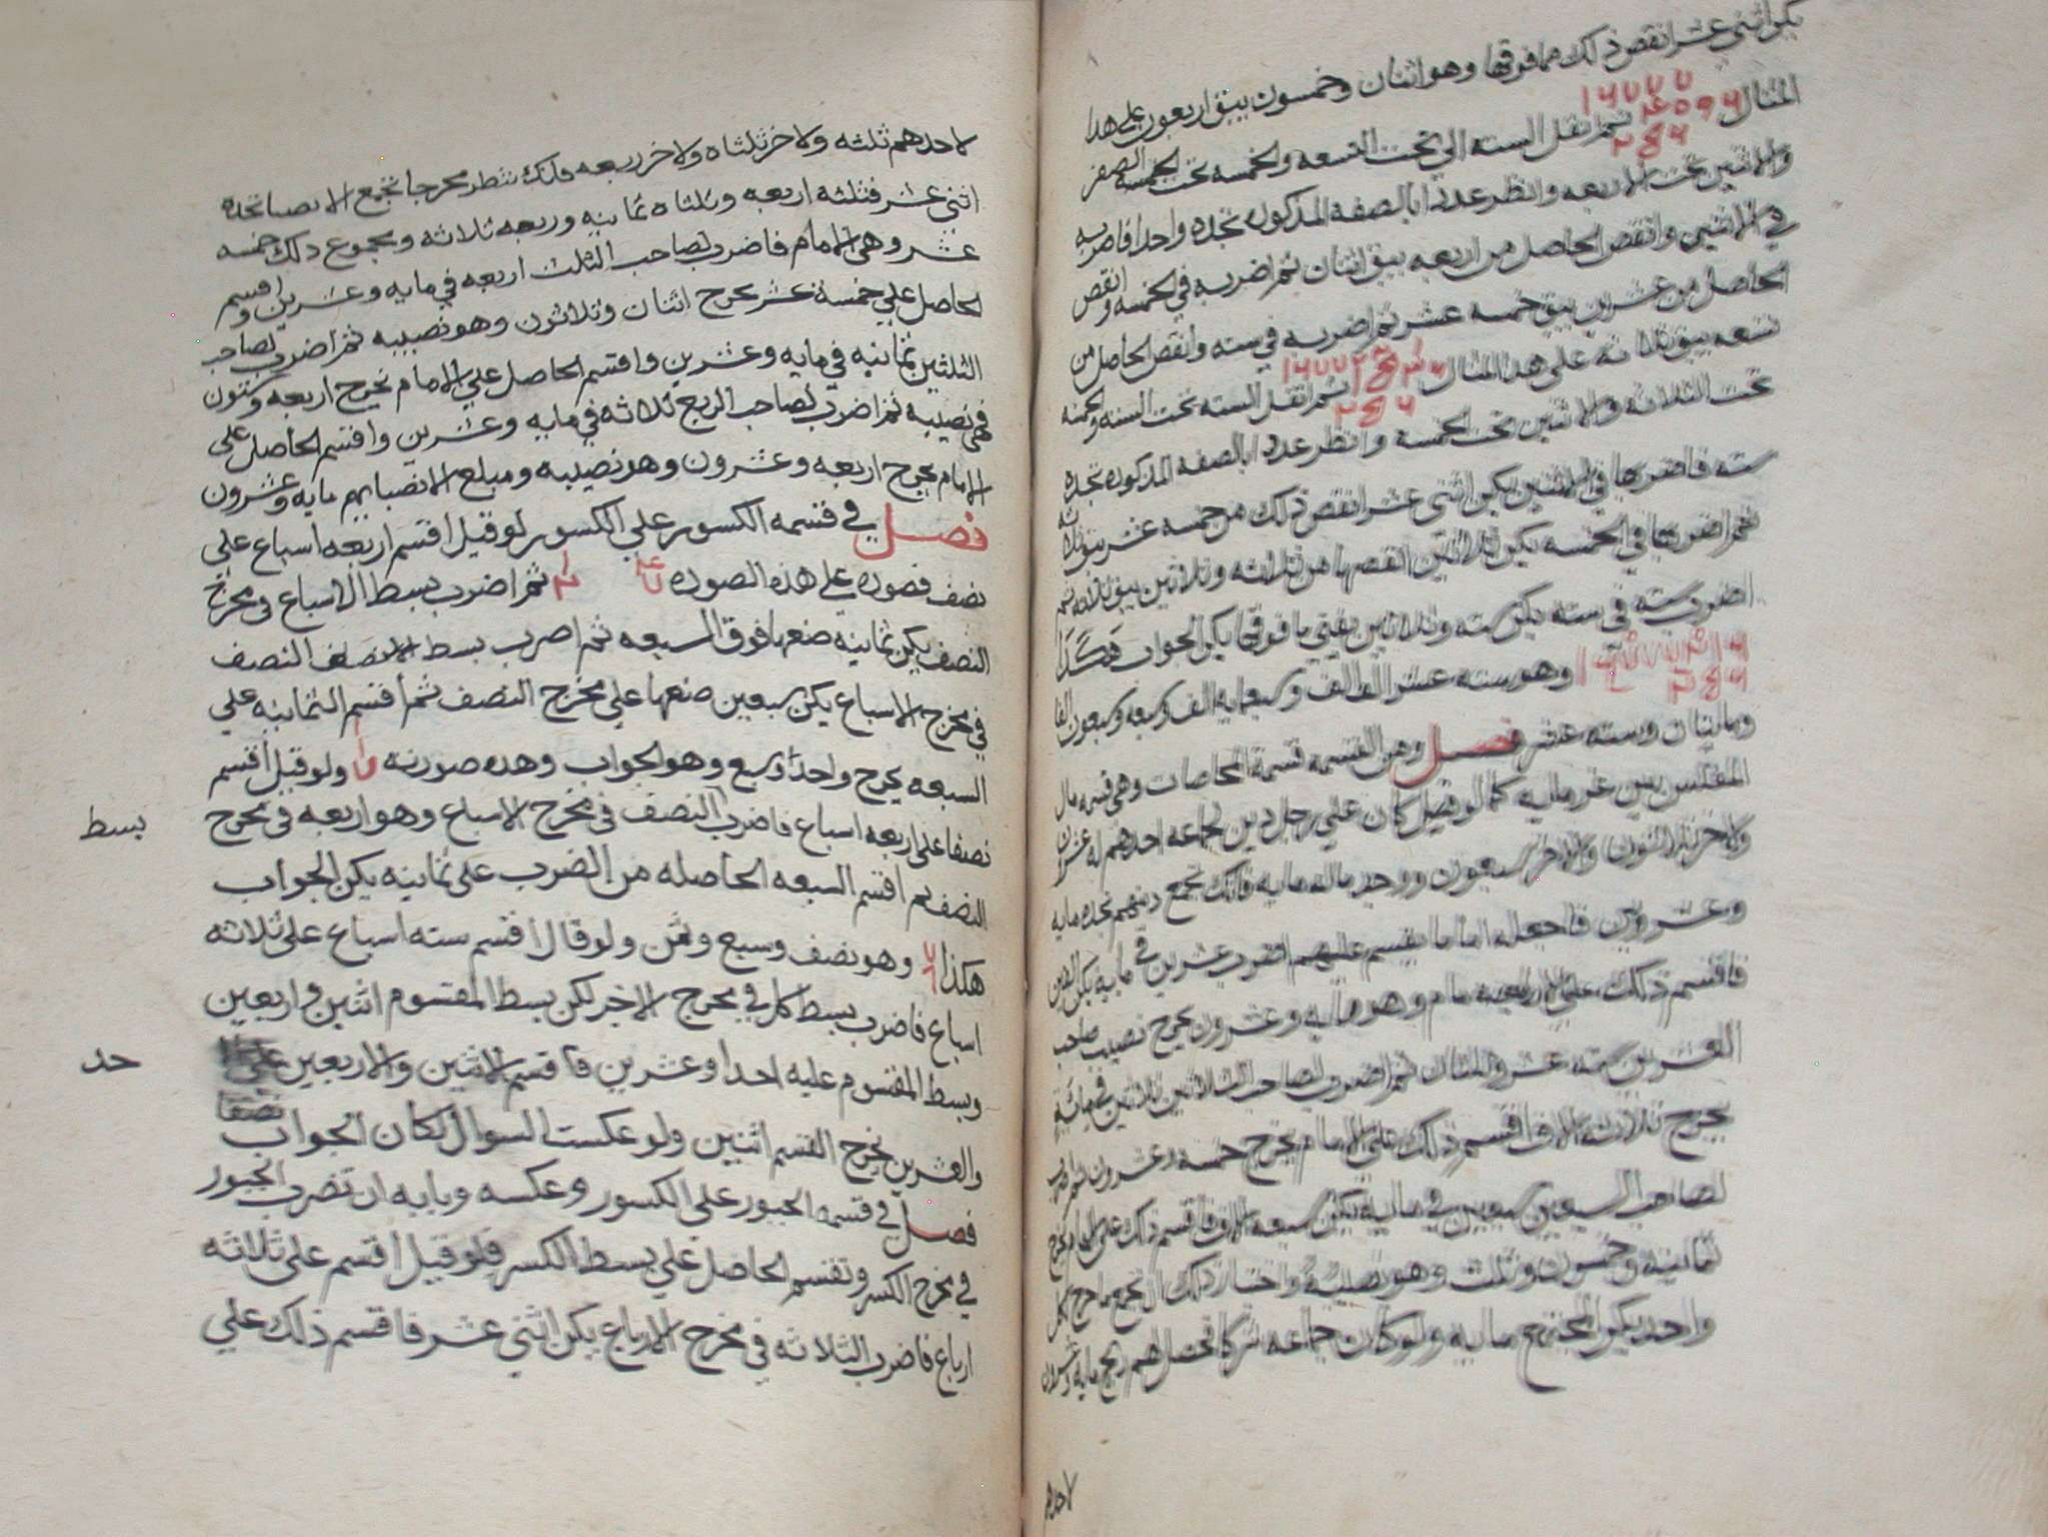 يكن اثنى عشر انقص ذلك مما فوقها وهو اثنان وخمسون يبق اربعون على هذا
المثال ثم انقل السته الى تحت التسعه والخمسه تحت الصفر
والاثنين تحت الاربعه وانظر عددا بالصفه المذكوره تجده واحدا فاضربه
في الاثنين وانقص الحاصل من اربعه يبق اثنان ثم اضربه في الخمسه وانقص
الحاصل من عشرين يبق خمسه عشر ثم اضربه في سته وانقص الحاصل من
تسعه يبق ثلاثه على هذا المثال ثم انقل السته تحت السته والخمسه
تحت الثلاثه والاثنين تحت الخمسه وانظر عددا بالصفه المذكوره تجده
سته فاضربها في الاثنين يكن اثنى عشر انقص ذلك من خمسه عشر يبق ثلاثه
ثم اضربها في الخمسه يكن ثلاثين انقصها من ثلاثه وثلاثين يبق ثلاثه ثم
اضرب سته في سته يكن سته وثلاثين يفنى ما فوقها يكن الجواب هكذا
وهو سته عشر الف الف وسبعمايه الف وسبعه وسبعون الفا
ومائتان وسته عشر فصل ومن القسمه قسمة المحاصات وهي قسمه مال
المفلس بين غرمايه كما لو قيل كان على رجل دين لجماعه احدهم له عشرون
ولاخر ثلاثون والاخر سبعون ووجد ماله مايه فانك تجمع دينهم تجده مايه
وعشرين فاجعله اماما يقسم عليهم اضرب عشرين في مايه يكن الفين
فاقسم ذلك على الامام وهو مايه وعشرون يخرج نصيب صاحب
العشرين سته عشر وثلثان ثم اضرب لصاحب الثلاثين ثلاثين في مائة
يخرج ثلاثة الاف اقسم ذلك على الامام يخرج خمسه وعشرون ثم اضرب
لصاحب السبعين سبعين في مايه يكن سبعه الاف فاقسم ذلك على الامام يخرج
ثمانيه وخمسون وثلث وهو نصيبه واختبار ذلك ان تجمع ما خرج لكل
واحد يكن المجتمع مايه ولو كان جماعه شركا تحصل لهم ربح مايه وعشرون
لاحدهم
لاحدهم ثلثه ولاخر ثلثاه ولاخر ربعه فانك تنظر مخرجا تجمع الانصبا تجده
اثنى عشر فثلثه اربعه وثلثاه ثمانيه وربعه ثلاثه ومجموع ذلك خمسه
عشر وهي الامام فاضرب لصاحب الثلث اربعه في مايه وعشرين واقسم
الحاصل على خمسة عشر يخرج اثنان وثلاثون وهو نصيبه ثم اضرب لصاحب
الثلثين ثمانيه في مايه وعشرين واقسم الحاصل على الامام يخرج اربعه وستون
فهى نصيبه ثم اضرب لصاحب الربع ثلاثه في مايه وعشرين واقسم الحاصل على
الامام يخرج اربعه وعشرون وهو نصيبه ومبلغ الانصبا يهم مايه وعشرون
فصل في قسمه الكسور على الكسور لو قيل اقسم اربعه اسباع على
نصف فصوره على هذه الصوره ثم اضرب بسط الاسباع في مخرج
النصف يكن ثمانية ضعها فوق السبعه ثم اضرب بسط النصف
في مخرج الاسباع يكن سبعين ضعها على مخرج النصف ثم اقسم الثمانيه على
السبعه يخرج واحدا وسبع وهو الجواب وهذه صورته ولو قيل اقسم
نصفا على اربعه اسباع فاضرب النصف في مخرج الاسباع وهو اربعه في مخرج
بسط
النصف ثم اقسم السبعه الحاصله من الضرب على ثمانيه يكن الجواب
هكذا وهو نصف وسبع وثمن ولو قال اقسم سته اسباع على ثلاثه
اسباع فاضرب بسط كل في مخرج الاخر لكن بسط المقسوم اثنين واربعين
وبسط المقسوم عليه احدا وعشرين فاقسم الاثنين والاربعين على
حد
والعشرين يخرج القسم اثنين ولو عكست السوال لكان الجواب نصفا
فصل في قسمة الجبور على الكسور وعكسه وبابه ان تضرب الجبور
في مخرج الكسر وتقسم الحاصل على بسط الكسر فلو قيل اقسم على ثلاثه
ارباع فاضرب الثلاثه في مخرج الارباع يكن اثنى عشر فاقسم ذلك على